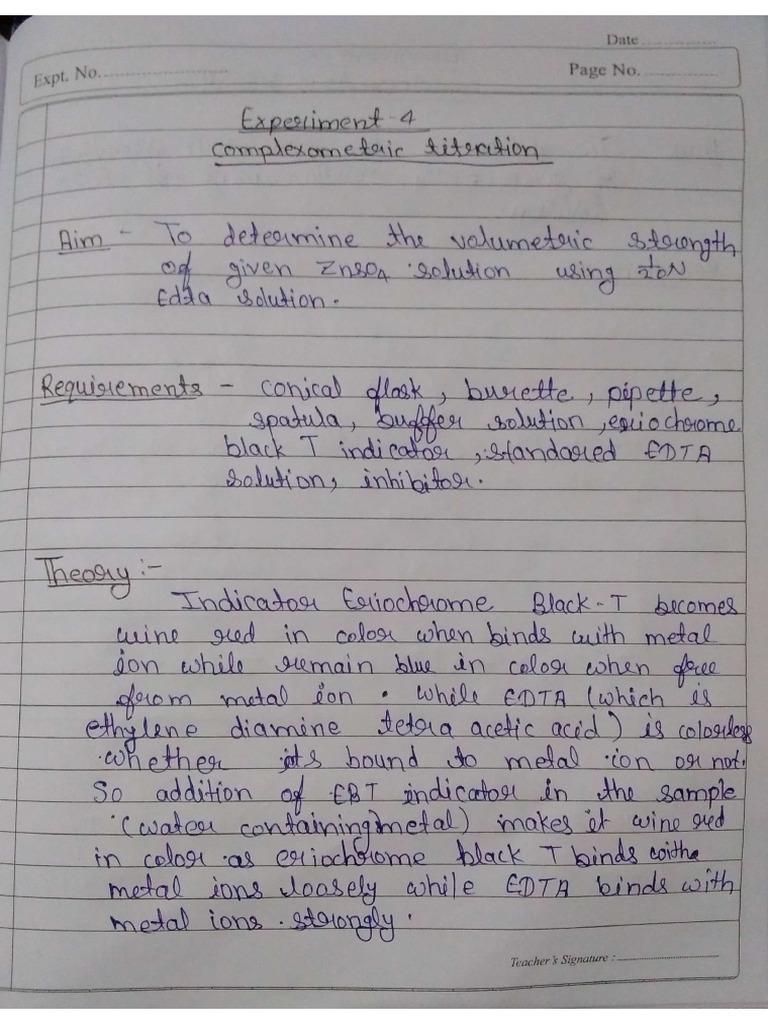 Date ..................
Expt. No. ..............................
Page No. ..................
Experiment-4
Complexometric titeration
Aim - To determine the volumetric strength
of given ZnSO4 solution using N
Edta solution.
Requirements - conical flask, burette, pipette,
spatula, buffer solution, eriochrome
black T indicator, standared EDTA
solution, inhibitor.
Theory :-
Indicator Eriochrome Black-T becomes
wine red in color when binds with metal
ion while remain blue in color when free
from metal ion . while EDTA (which is
ethylene diamine tetra acetic acid) is colorless
whether its bound to metal ion or not.
So addition of EBT indicator in the sample
(water containing metal) makes it wine red
in color as eriochrome black T binds with
metal ions loosely while EDTA binds with
metal ions strongly.
Teacher's Signature : ..............................